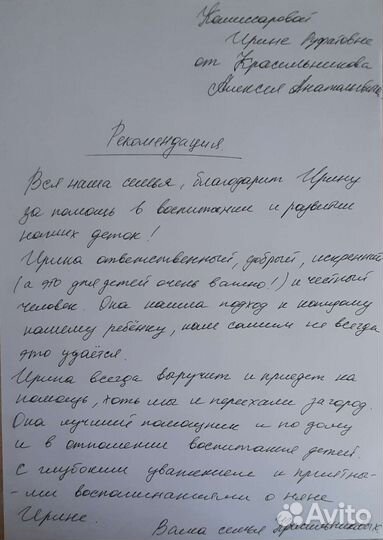 Комиссаровой
Ирине Руфатовне
от Красильникова
Алексея Анатольевича
Рекомендация
Вся наша семья, благодарит Ирину
за помощь в воспитании и развитии
наших деток!
Ирина ответственный, добрый, искренний
(а это для детей очень важно!) и честный
человек. Она нашла подход к каждому
нашему ребёнку, нам самим не всегда
это удаётся.
Ирина всегда выручит и приедет на
помощь, хоть мы и переехали загород.
Она лучший помощник и по дому
и в отношении воспитания детей.
С глубоким уважением и приятны-
-ми воспоминаниями о няне
Ирине.
Ваша семья Красильниковых
Avito